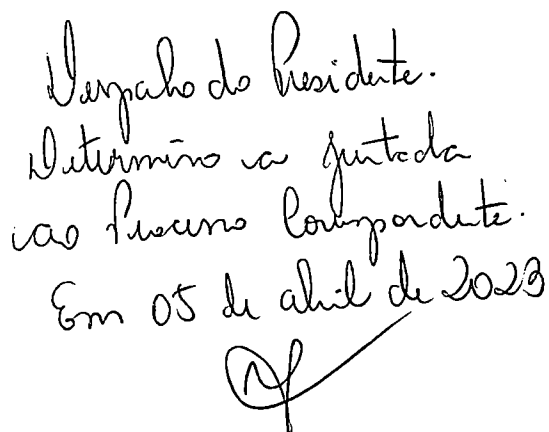 Despacho do Presidente.
Determino a juntada
ao Processo Correspondente.
Em 05 de abril de 2023